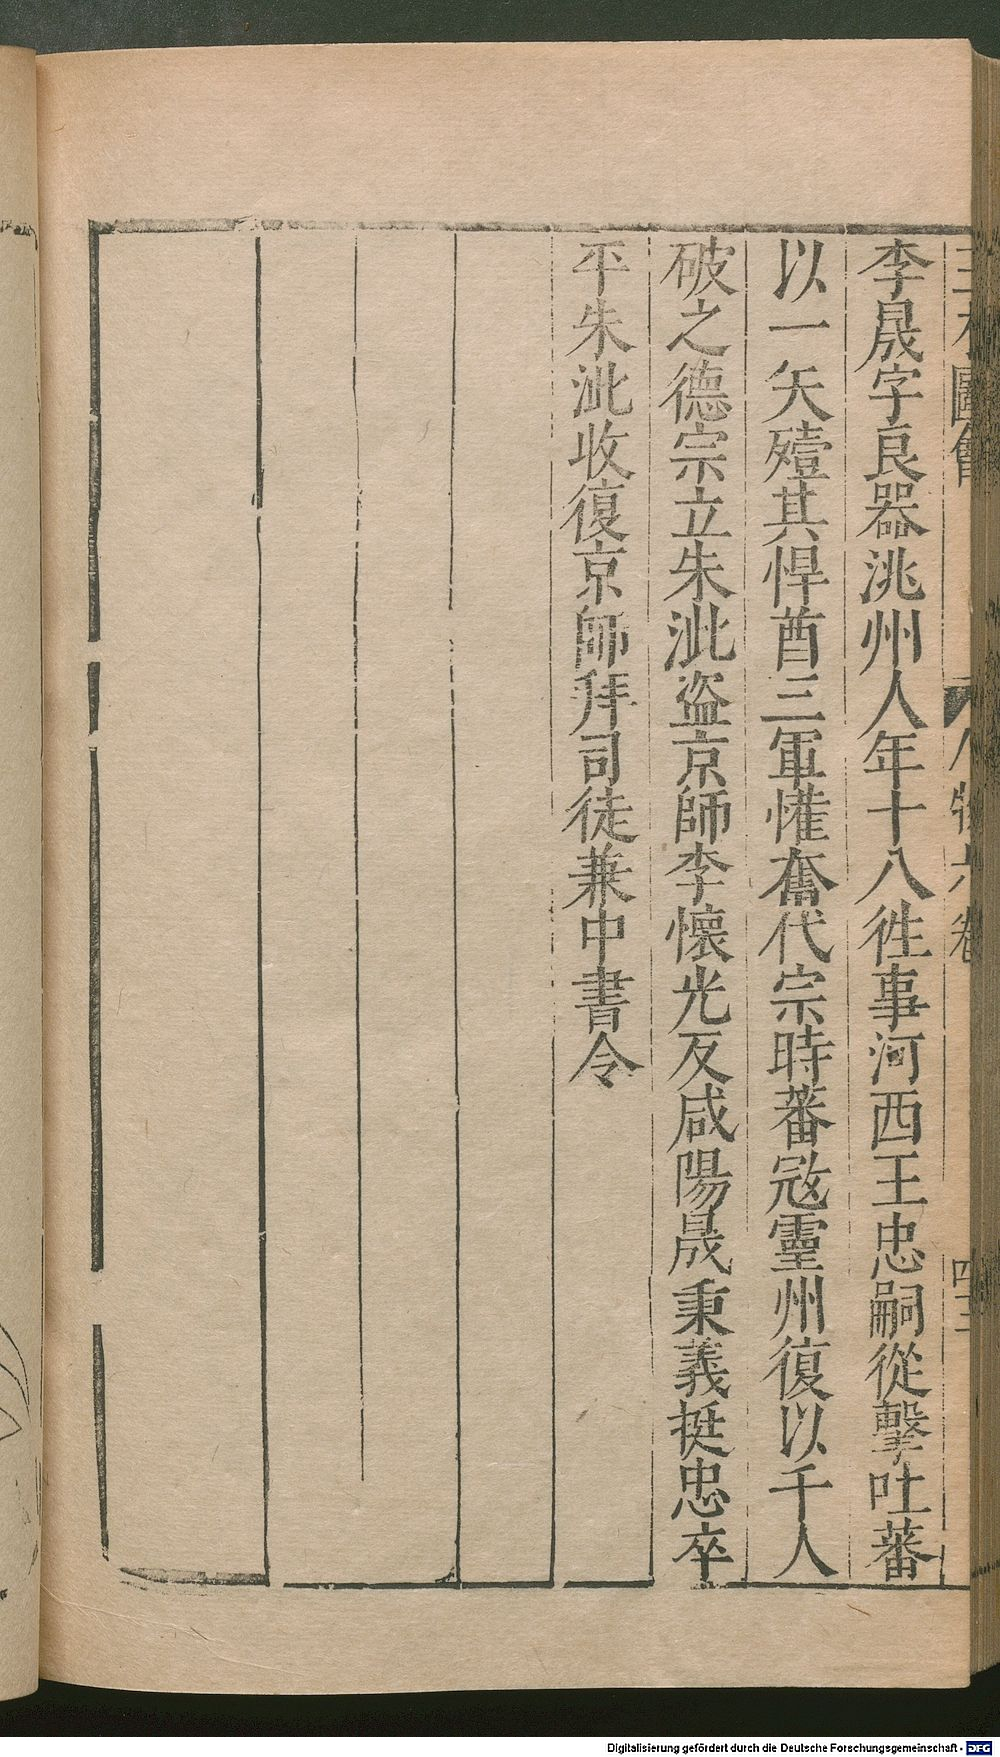 三才圖會 人物六卷 四三
李晟字良器洮州人年十八徃事河西王忠嗣從擊吐蕃
以一矢殪其悍酋三軍懽奮代宗時蕃宼靈州復以千人
破之德宗立朱泚盗京師李懷光反咸陽晟秉義挺忠卒
平朱泚收復京師拜司徒兼中書令
Digitalisierung gefördert durch die Deutsche Forschungsgemeinschaft - DFG